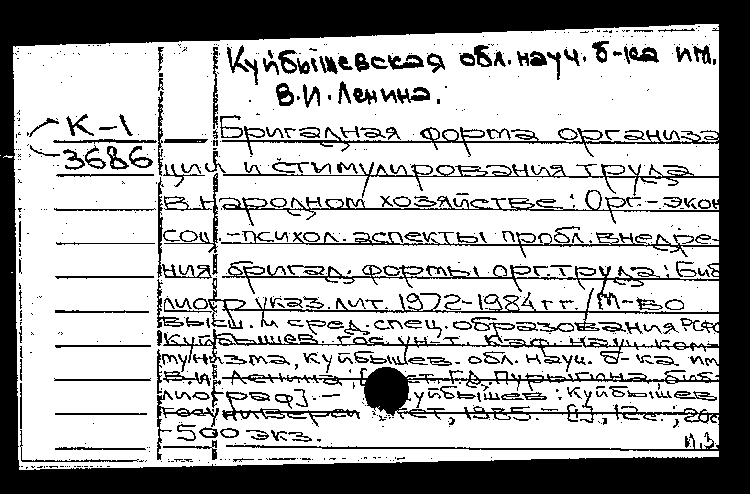 Куйбышевская обл. науч. б-ка им.
В.И. Ленина.
К-1
3686
Бригадная форма организа
ции и стимулирования труда
в народном хозяйстве: Орг.-экон
соц.-психол. аспекты пробл. внедре-
ния бригад. формы орг. труда: Биб
лиогр указ. лит. 1972-1984 гг. / М-во
высш. и сред. спец. образования РСФС
Куйбышев. гос. ун-т. Каф. науч. ком-
мунизма, Куйбышев. обл. науч. б-ка им
В.И. Ленина; [ ст. Г.А. Пурыгина, биб
лиограф]. – уйбышев: Куйбышев
госуниверси тет, 1985. – [1], 12с.; 20с
- 500 экз.
п.з.